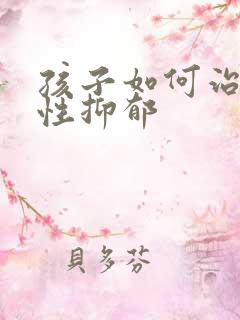 孩子如何治
性抑郁
貝多芬